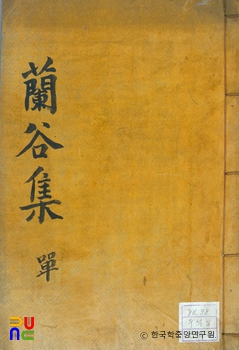 蘭谷集
單
© 한국학중앙연구원